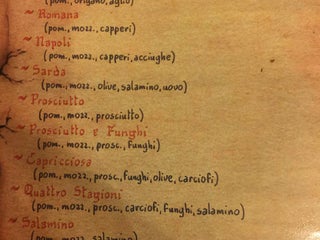 (pom., origano, aglio)
~ Romana
(pom., mozz., capperi)
~ Napoli
(pom., mozz., capperi, acciughe)
~ Sarda
(pom., mozz., olive, salamino, uovo)
~ Prosciutto
(pom., mozz., prosciutto)
~ Prosciutto e Funghi
(pom., mozz., prosc., funghi)
~ Capricciosa
(pom., mozz., prosc., funghi, olive, carciofi)
~ Quattro Stagioni
(pom., mozz., prosc., carciofi, funghi, salamino)
~ Salamino
(pom., mozz., salamino)